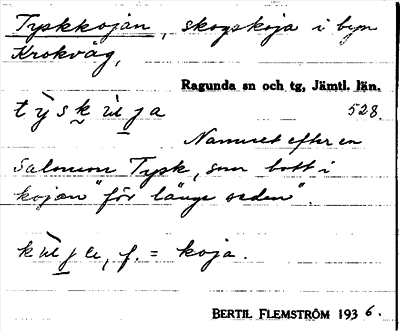 Tyskkojan, skogskoja i byn
Krokvåg,
Ragunda sn och tg, Jämtl. län.
528.
Namnet efter en
Salomon Tysk, som bott i
kojan "för länge sedan".
f. = koja.
BERTIL FLEMSTRÖM 1936.